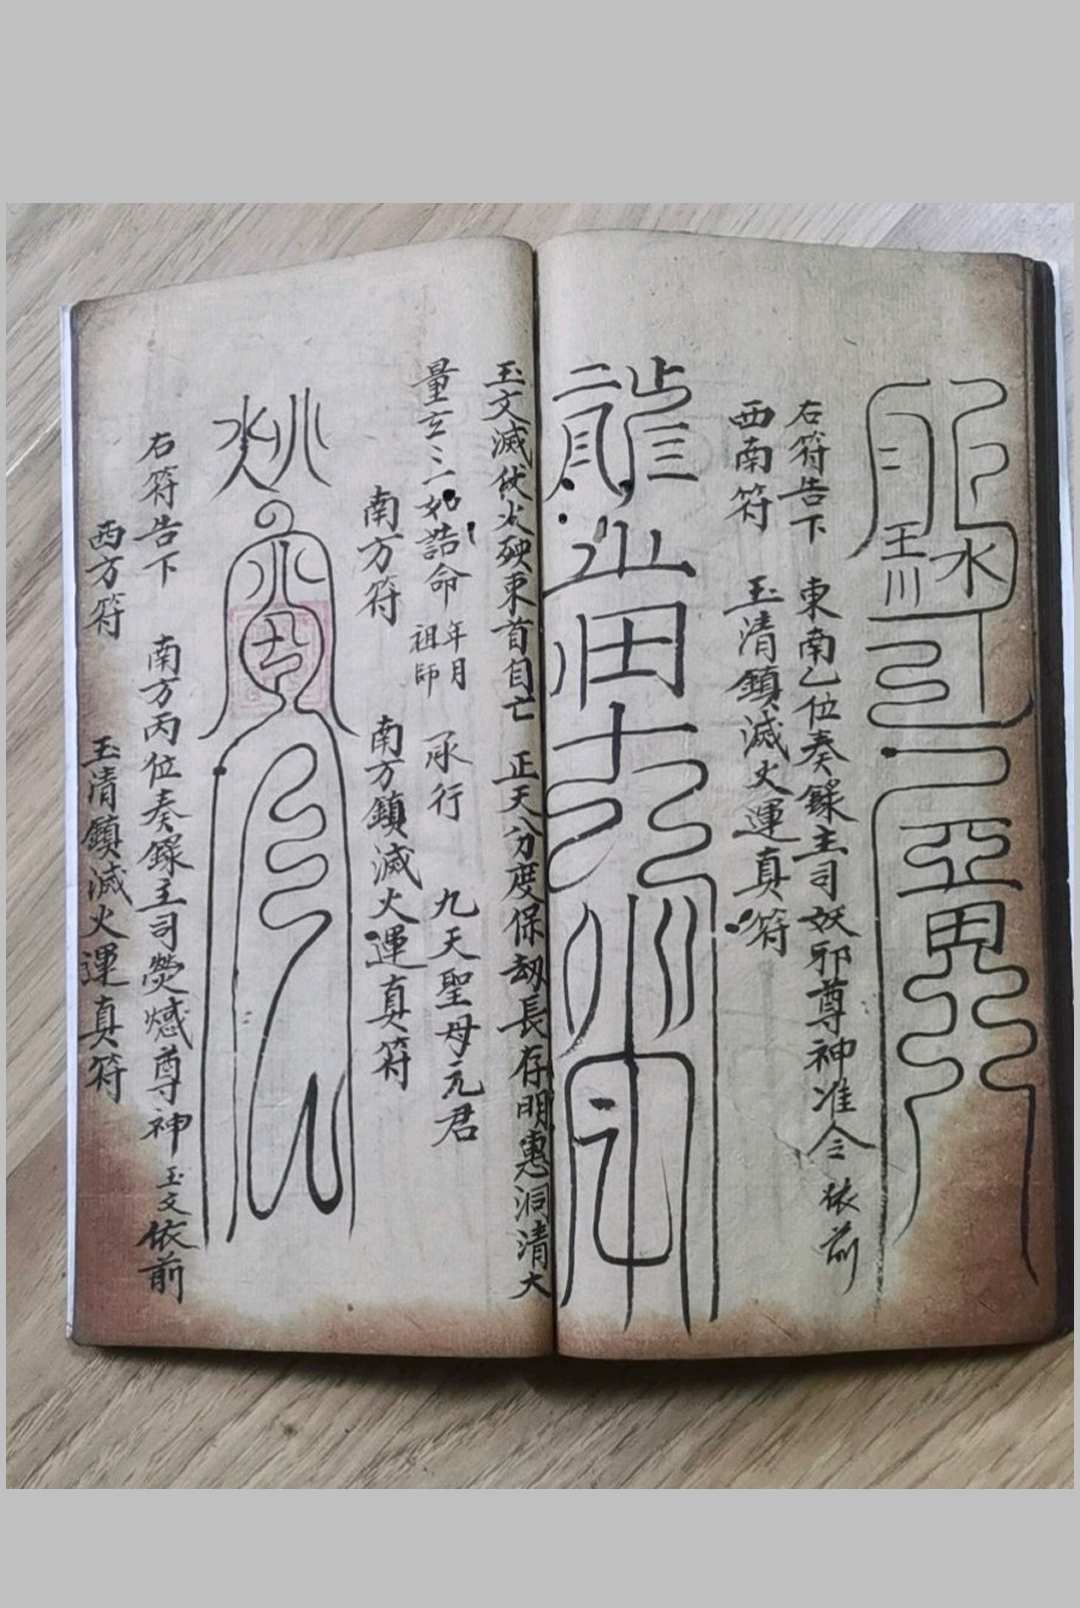 右符告下　東南乙位奏籙主司妖邪尊神准令依前
西南符　玉清鎮滅火運真符
玉文滅伏火殃東首自亡　正天分度保劫長存明惠洞清大
量玄〻二如誥命　年月　祖師　承行　九天聖母元君
南方符　南方鎮滅火運真符
右符告下　南方丙位奏籙主司熒惑尊神玉文依前
西方符　玉清鎮滅火運真符